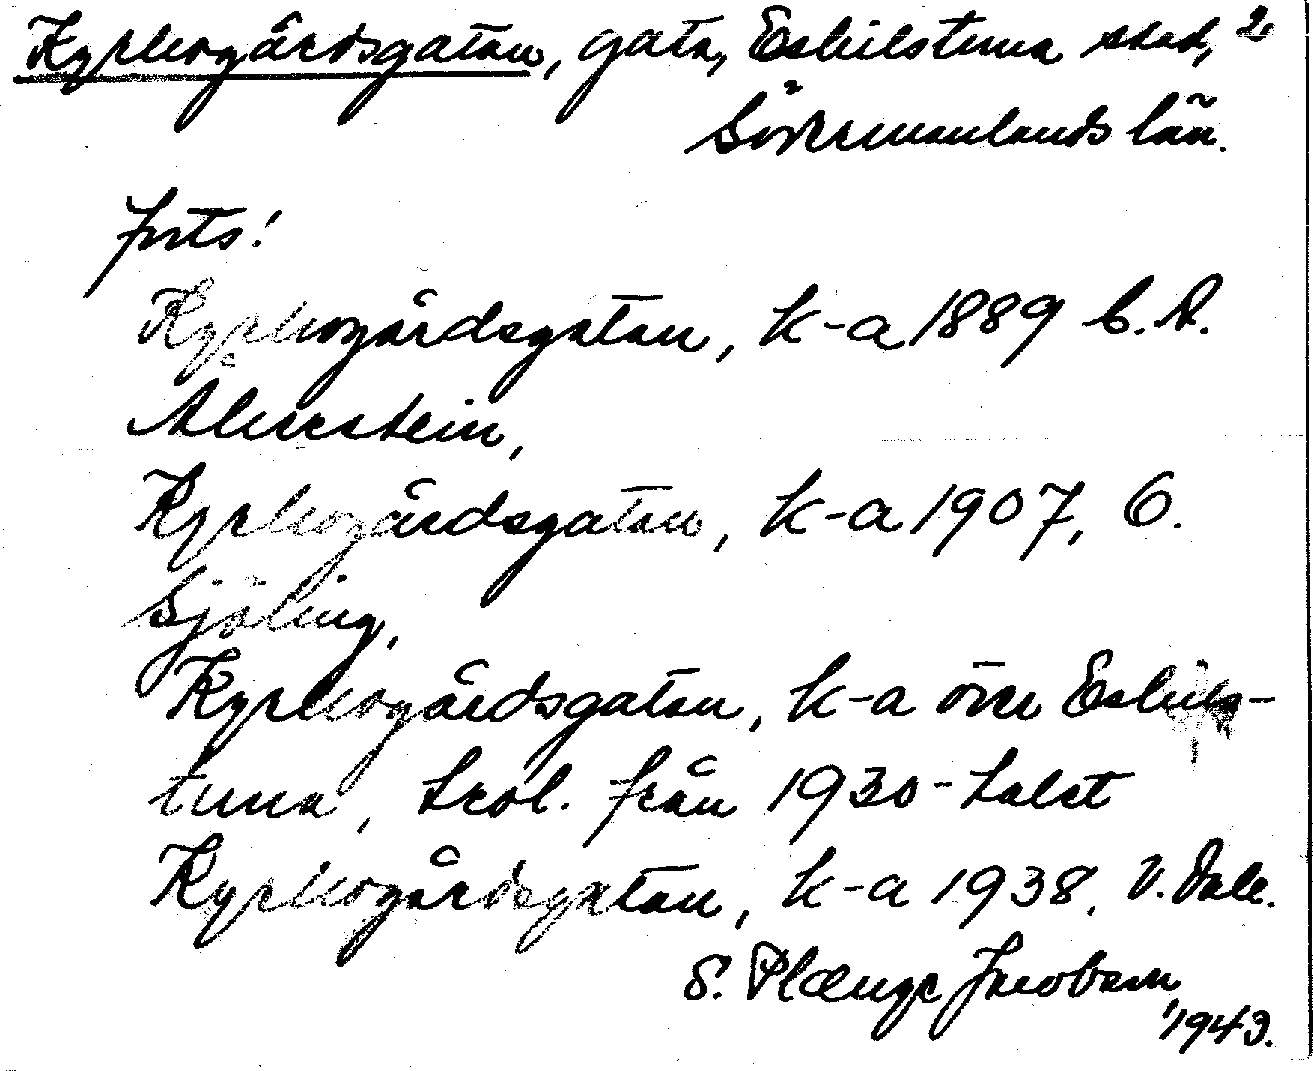 Kyrkogårdsgatan, gata, Eskilstuna stad, 2
Södermanlands län.
forts!
Kyrkogårdsgatan, k-a 1889 C. A.
Alverstein,
Kyrkogårdsgatan, k-a 1907, C.
Sjöling,
Kyrkogårdsgatan, k-a över Eskils-
tuna, trol. från 1930-talet
Kyrkogårdsgatan, k-a 1938, V. Dale.
S. Plænge Jacobson
1943.